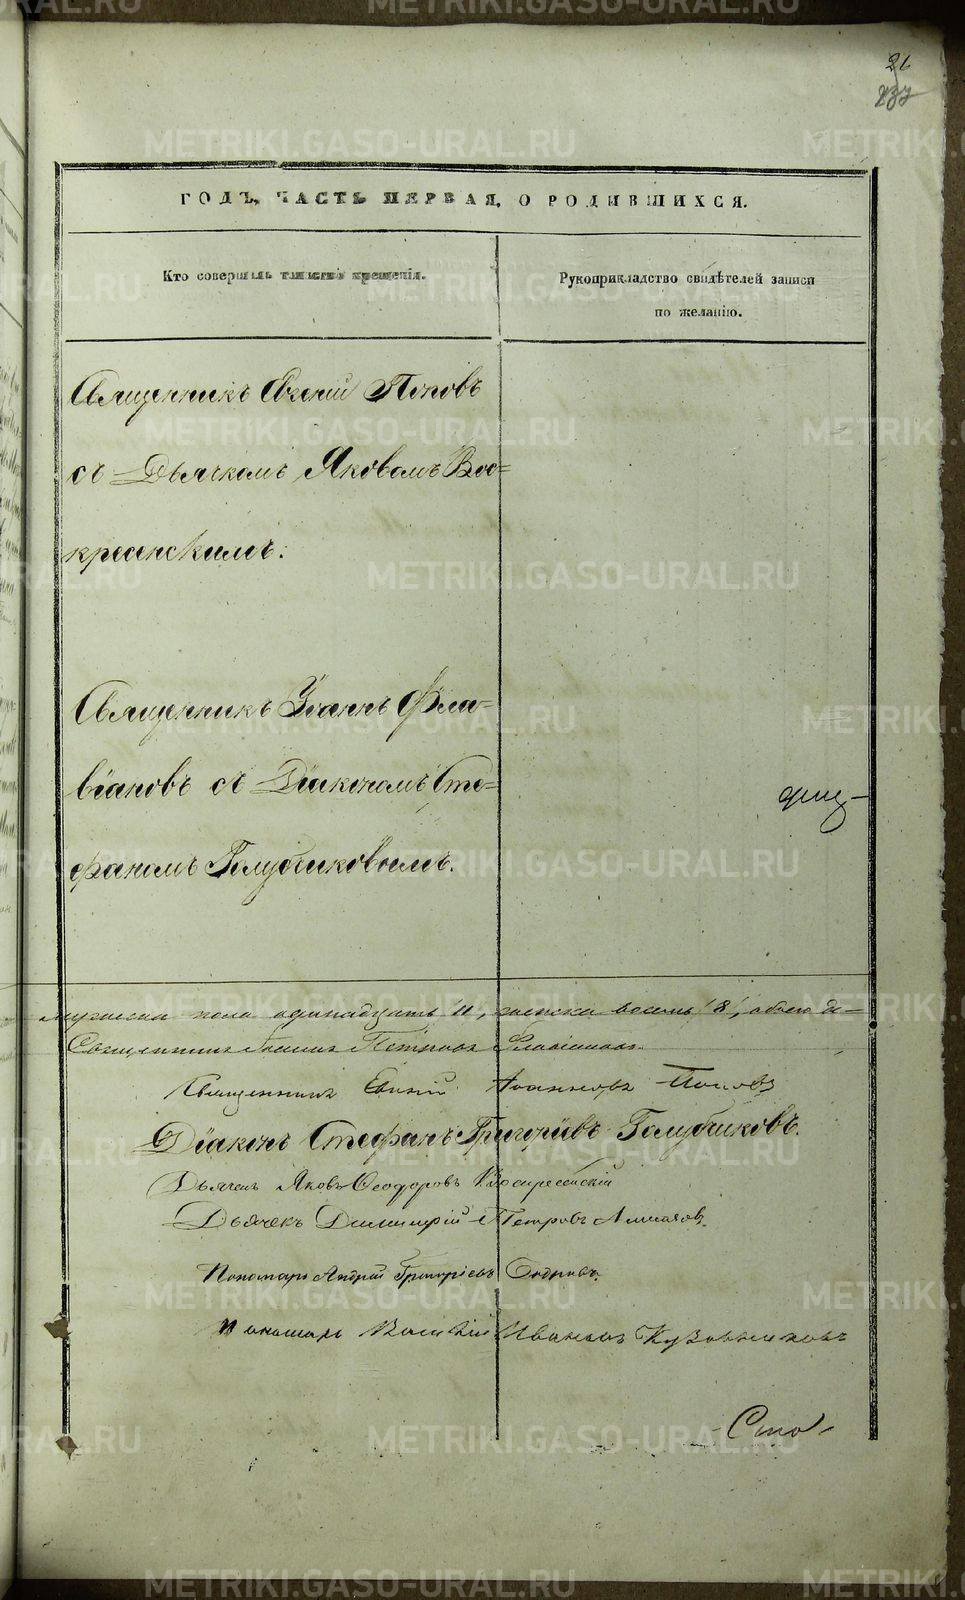 26
237
ГОДЪ, ЧАСТЬ ПЕРВАЯ, О РОДИВШИХСЯ.
Кто совершалъ таинство крещенія.
Рукоприкладство свидѣтелей записи
по желанію.
Священникъ Евгеній Поповъ
съ Дьячкомъ Яковомъ Вос=
кресенскимъ.
Священникъ Іоаннъ Фла-
віановъ съ Діакономъ Сте-
фаномъ Голубчиковымъ.
мужеска пола одинадцать 11, женска восемь 8, обоего
Священникъ Іоаннъ Петровъ Флавіановъ
Священникъ Евгеній Іоанновъ Поповъ
Діаконъ Стефанъ Григоріевъ Голубчиковъ.
Дьячекъ Яковъ Феодоровъ Воскресенскій
Дьячекъ Димитрій Петровъ
Пономарь Андрей Григоріевъ
Пономарь Василій Ивановъ
METRIKI.GASO-URAL.RU